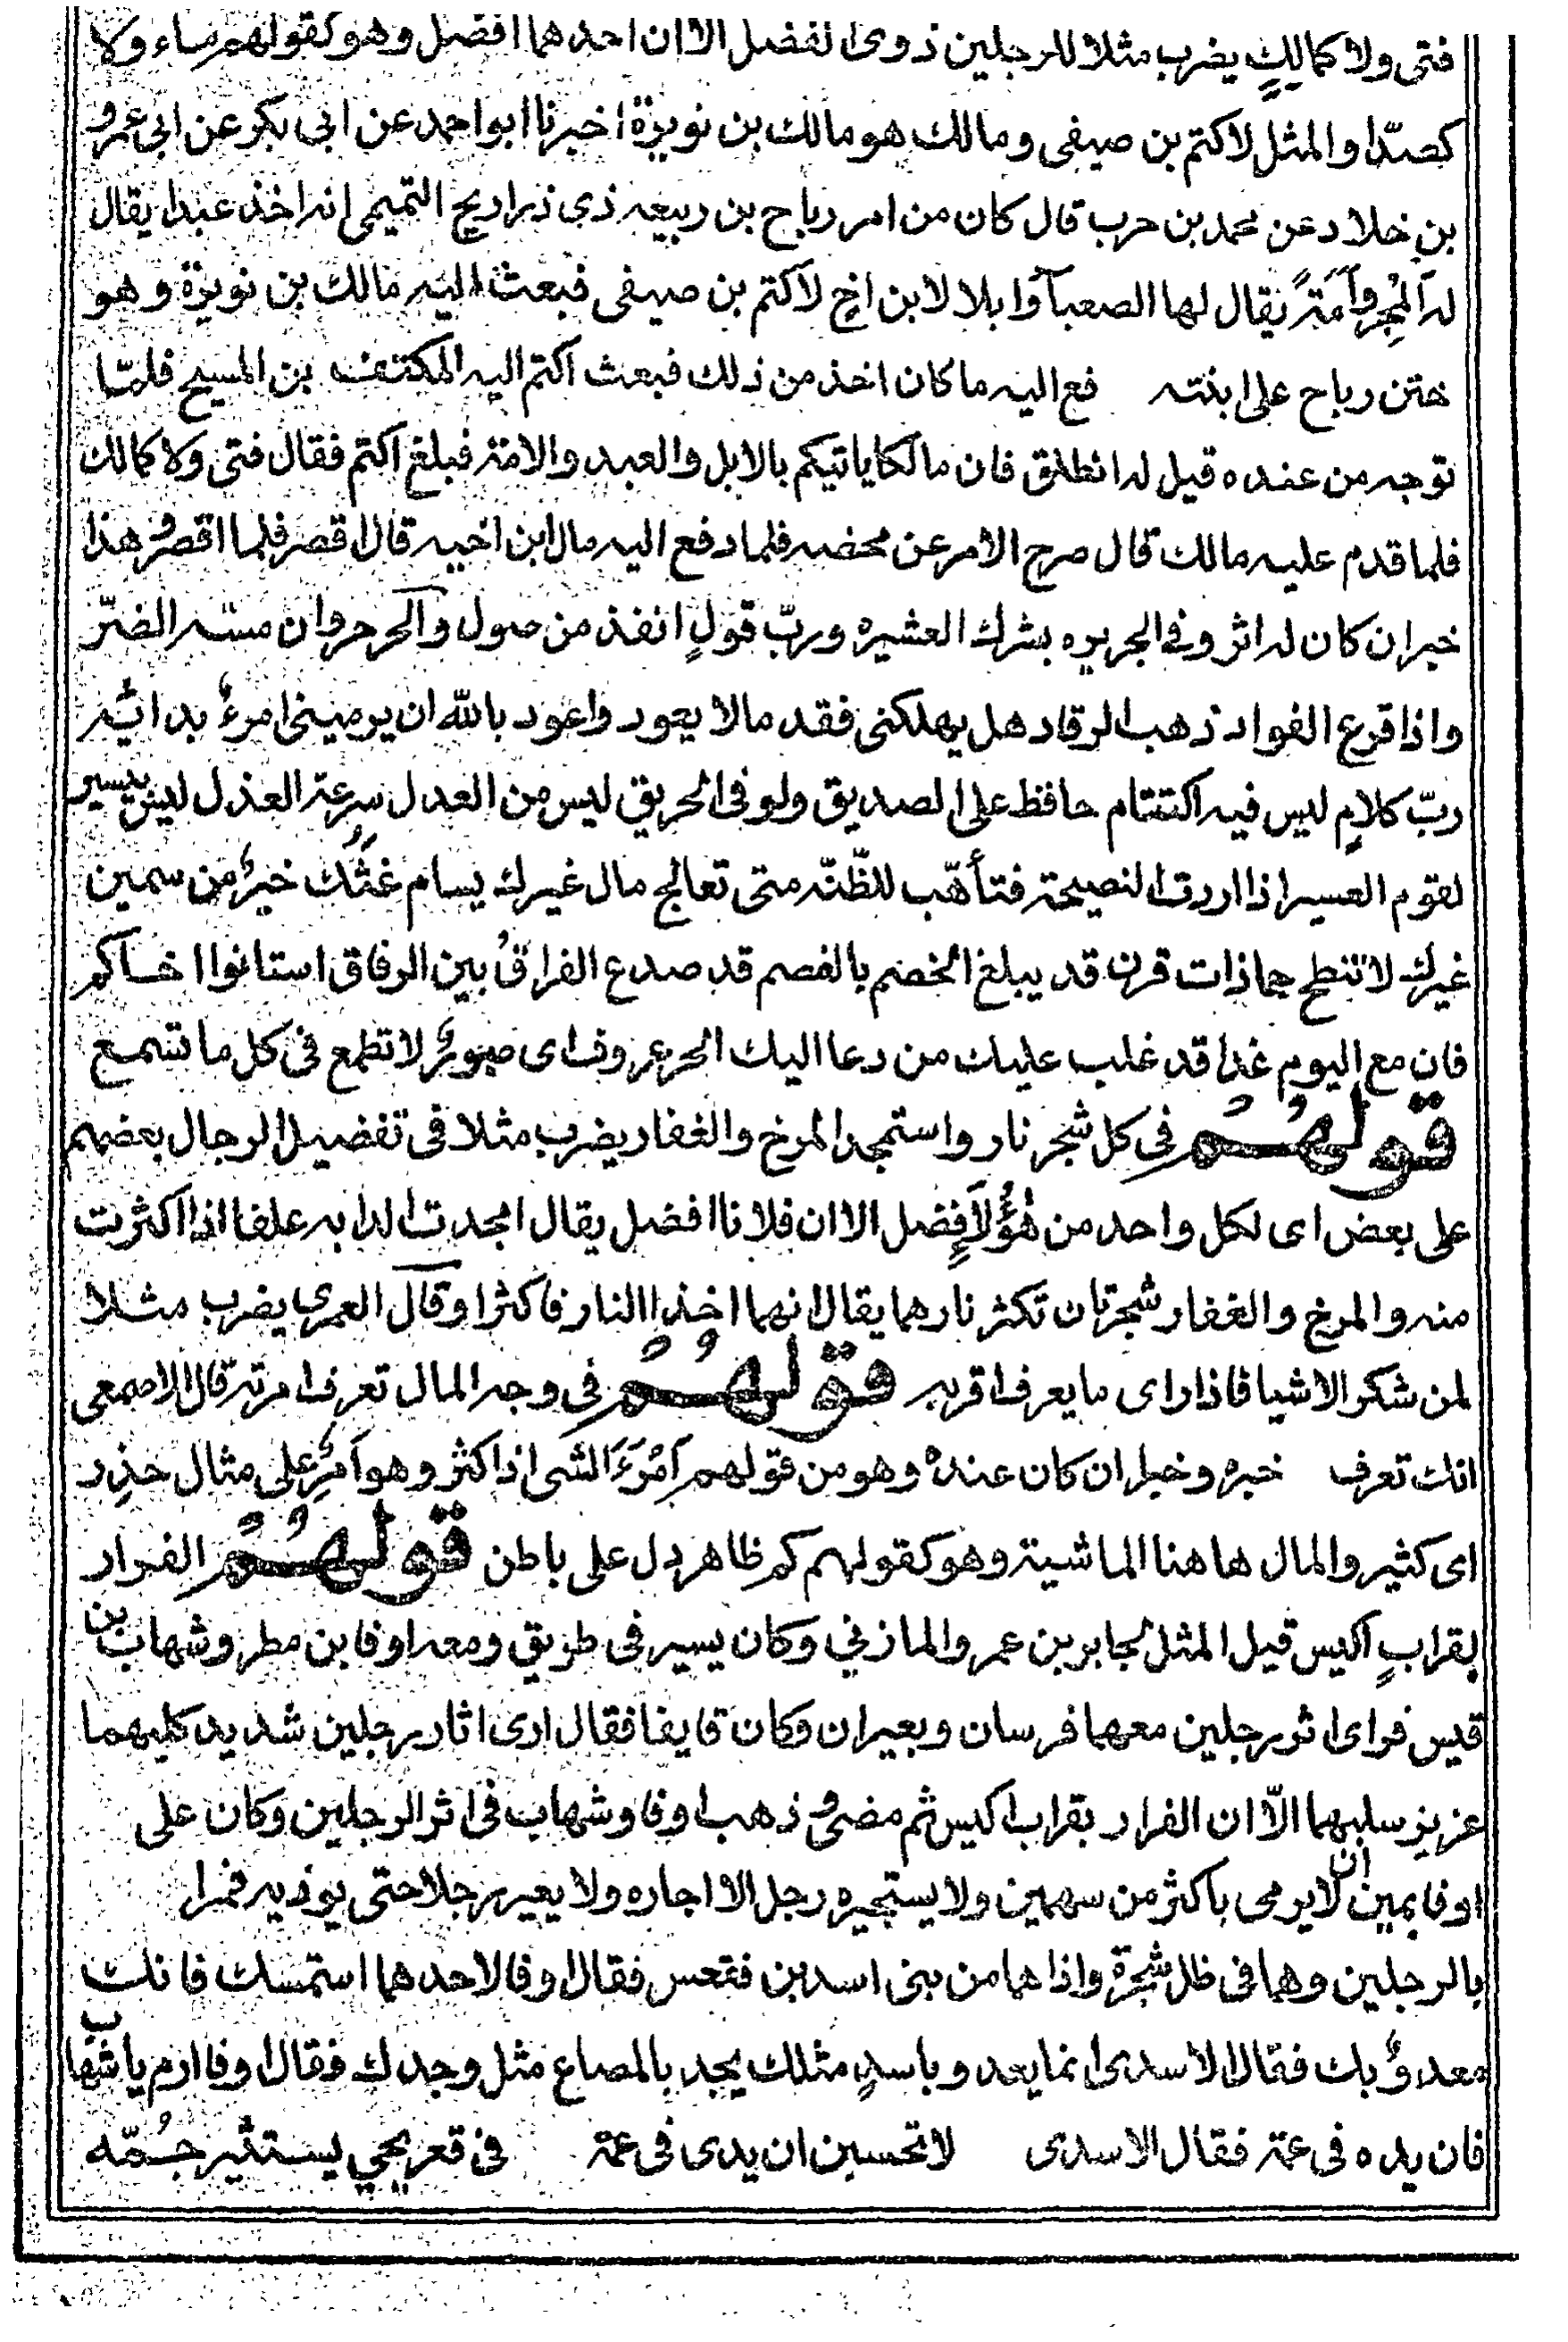 فتى ولا كمالكٍ يضرب مثلا للرجلين ذوى الفضل الا ان احدهما افضل وهو كقولهم ماء ولا
كصدّا والمثل لاكتم بن صيفى ومالك هو مالك بن نويرة اخبرنا ابو احمد عن ابى بكر عن ابى عمرو
بن خلاد عن محمد بن حرب قال كان من امر رباح بن ربيعه ذى ذراريح التميمى انه اخذ عبدا يقال
له المجر وأمَةً يقال لها الصعبآ وابلا لابن اخٍ لاكتم بن صيفى فبعث اليه مالك بن نويرة وهو
ختن رباح على ابنته فع اليه ما كان اخذ من ذلك فبعث اكتم اليه المكتنف بن المسيح فلمّا
توجه من عنده قيل له انطلق فان مالكا ياتيكم بالابل والعبد والامة فبلغ اكتم فقال فتى ولا كمالك
فلما قدم عليه مالك قال صرح الامر عن محضه فلما دفع اليه مال ابن اخيه قال اقصر فلما اقصر وهذا
خير ان كان له اثر وفى الجريره بشرك العشيره وربّ قولٍ انفذ من صول والحر حر وان مسّه الضرّ
واذا قرع الفواد ذهب الرقاد هل يهلكنى فقد ما لا يعود واعود بالله ان يرمينى امرءٌ بدائه
ربّ كلامٍ ليس فيه اكتتام حافظ على الصديق ولو فى الحريق ليس من العدل سرعة العذل ليس بيسير
لقوم العسير اذا اردت النصيحة فتأهّب للظّنّه متى تعالج مال غيرك يسام غثُّك خيرٌ من سمين
غيرك لا تنطح جما ذات قرن قد يبلغ الخضم بالفصم قد صدع الفراقُ بين الرفاق استانوا اخاكم
فان مع اليوم غدا قد غلب عليك من دعا اليك الحر عروف اى صبورٌ لا تطمع فى كل ما تسمع
قولهُم فى كل شجر نار واستمجد المرخ والغفار يضرب مثلا فى تفضيل الرجال بعضهم
على بعض اى لكل واحد من هؤلآءِ فضل الا ان فلانا افضل يقال امجدت الدابه علفا اذا اكثرت
منه والمرخ والغفار شجرتان تكثر نارهما يقال انهما اخذا النار فاكثرا وقال العمرى يضرب مثلا
لمن شكر الاشيا فاذا راى ما يعرف اقر به قولهُم فى وجه المال تعرف امرته قال الاصمعى
انك تعرف خيره وخيرا ان كان عندهُ وهو من قولهم أمْرَءَ الشى اذا كثر وهو أمِرٌ على مثال حذِر
اى كثير والمال هاهنا الماشية وهو كقولهم كم ظاهر دل على باطن قولهُم الفرار
بقرابٍ اكيس قيل المثل لجابر بن عمر والمازني وكان يسير فى طريق ومعه اوفا بن مطر وشهاب بن
قيس فراى اثر رجلين معهما فرسان وبعيران وكان قايفا فقال ارى اثار رجلين شديد كلبهما
عزيز سلبهما الاّ ان الفرار بقراب اكيس ثم مضى وذهب اوفا وشهاب فى اثر الرجلين وكان على
اوفا يمين ان لا يرمى باكثر من سهمين ولا يستجيره رجل الا اجاره ولا يعير رجلا حتى يوذيه فمرا
بالرجلين وهما فى ظل شجرة واذا هما من بنى اسد بن فقعس فقال اوفا لاحدهما استمسك فانك
معدوٌ بك فقال الاسدى انما يعد وباسدٍ مثلك يجد بالمصاع مثل وجدك فقال اوفا ارم يا شهاب
فان يده فى عمّة فقال الاسدى لا تحسبن ان يدى فى عمّة فى قعر بحي يستثير جُمّه